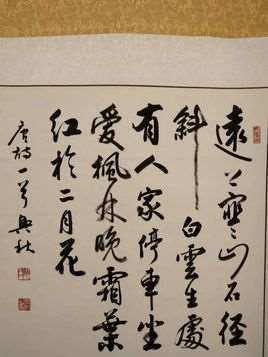 遠上寒山石徑
斜白雲生處
有人家停車坐
愛楓林晚霜葉
红於二月花
唐詩一首